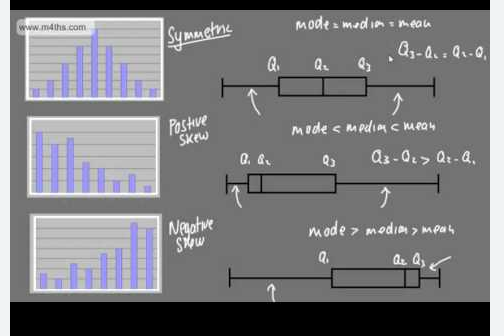 www.m4ths.com
Symmetric
mode = median = mean
Q3 - Q2 = Q2 - Q1
Q1 Q2 Q3
Positive
Skew
mode < median < mean
Q1 Q2 Q3
Q3 - Q2 > Q2 - Q1
Negative
Skew
mode > median > mean
Q1 Q2 Q3